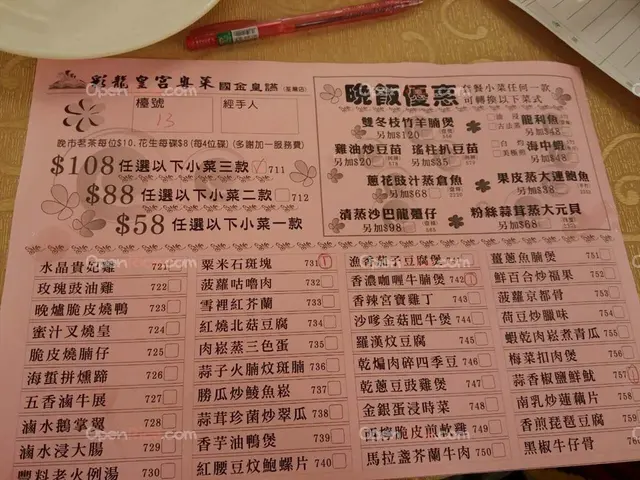 彩龍皇宮粵菜 國金皇譑 (荃灣店)
檯號 13 經手人
晚市茗茶每位$10、花生每碟$8 (每4位碟) (多謝加一服務費)
$108 任選以下小菜三款 711
$88 任選以下小菜二款 712
$58 任選以下小菜一款
晚飯優惠 套餐小菜任何一款 可轉換以下菜式
雙冬枝竹羊腩煲 另加$120
龍利魚 另加$48
雞油炒豆苗 另加$20
瑤柱扒豆苗 另加$35
海中蝦 另加$48
蔥花豉汁蒸倉魚 另加$68
果皮蒸大連鮑魚 另加$38
清蒸沙巴龍躉仔 另加$98
粉絲蒜茸蒸大元貝 另加$68
水晶貴妃雞 721
玫瑰豉油雞 722
晚爐脆皮燒鴨 723
蜜汁叉燒皇 724
脆皮燒腩仔 725
海蜇拼燻蹄 726
五香滷牛展 727
滷水鵝掌翼 728
滷水浸大腸 729
豐料老火例湯 730
粟米石斑塊 731
菠蘿咕嚕肉 732
雪裡紅芥蘭 733
紅燒北菇豆腐 734
肉崧蒸三色蛋 735
蒜子火腩炆斑腩 736
勝瓜炒鯪魚崧 737
蒜茸珍菌炒翠瓜 738
香芋油鴨煲 739
紅腰豆炆鮑螺片 740
漁香茄子豆腐煲
香濃咖喱牛腩煲 742
香辣宮寶雞丁 743
沙嗲金菇肥牛煲 744
羅漢炆豆腐 745
乾煸肉碎四季豆 746
乾蔥豆豉雞煲 747
金銀蛋浸時菜 748
西檸脆皮煎軟雞 749
馬拉盞芥蘭牛肉 750
薑蔥魚腩煲 751
鮮百合炒福果 752
菠蘿京都骨 753
荷豆炒臘味 754
蝦乾肉崧煮青瓜 755
梅菜扣肉煲 756
蒜香椒鹽鮮魷 757
南乳炒蓮藕片 758
香煎琵琶豆腐 759
黑椒牛仔骨